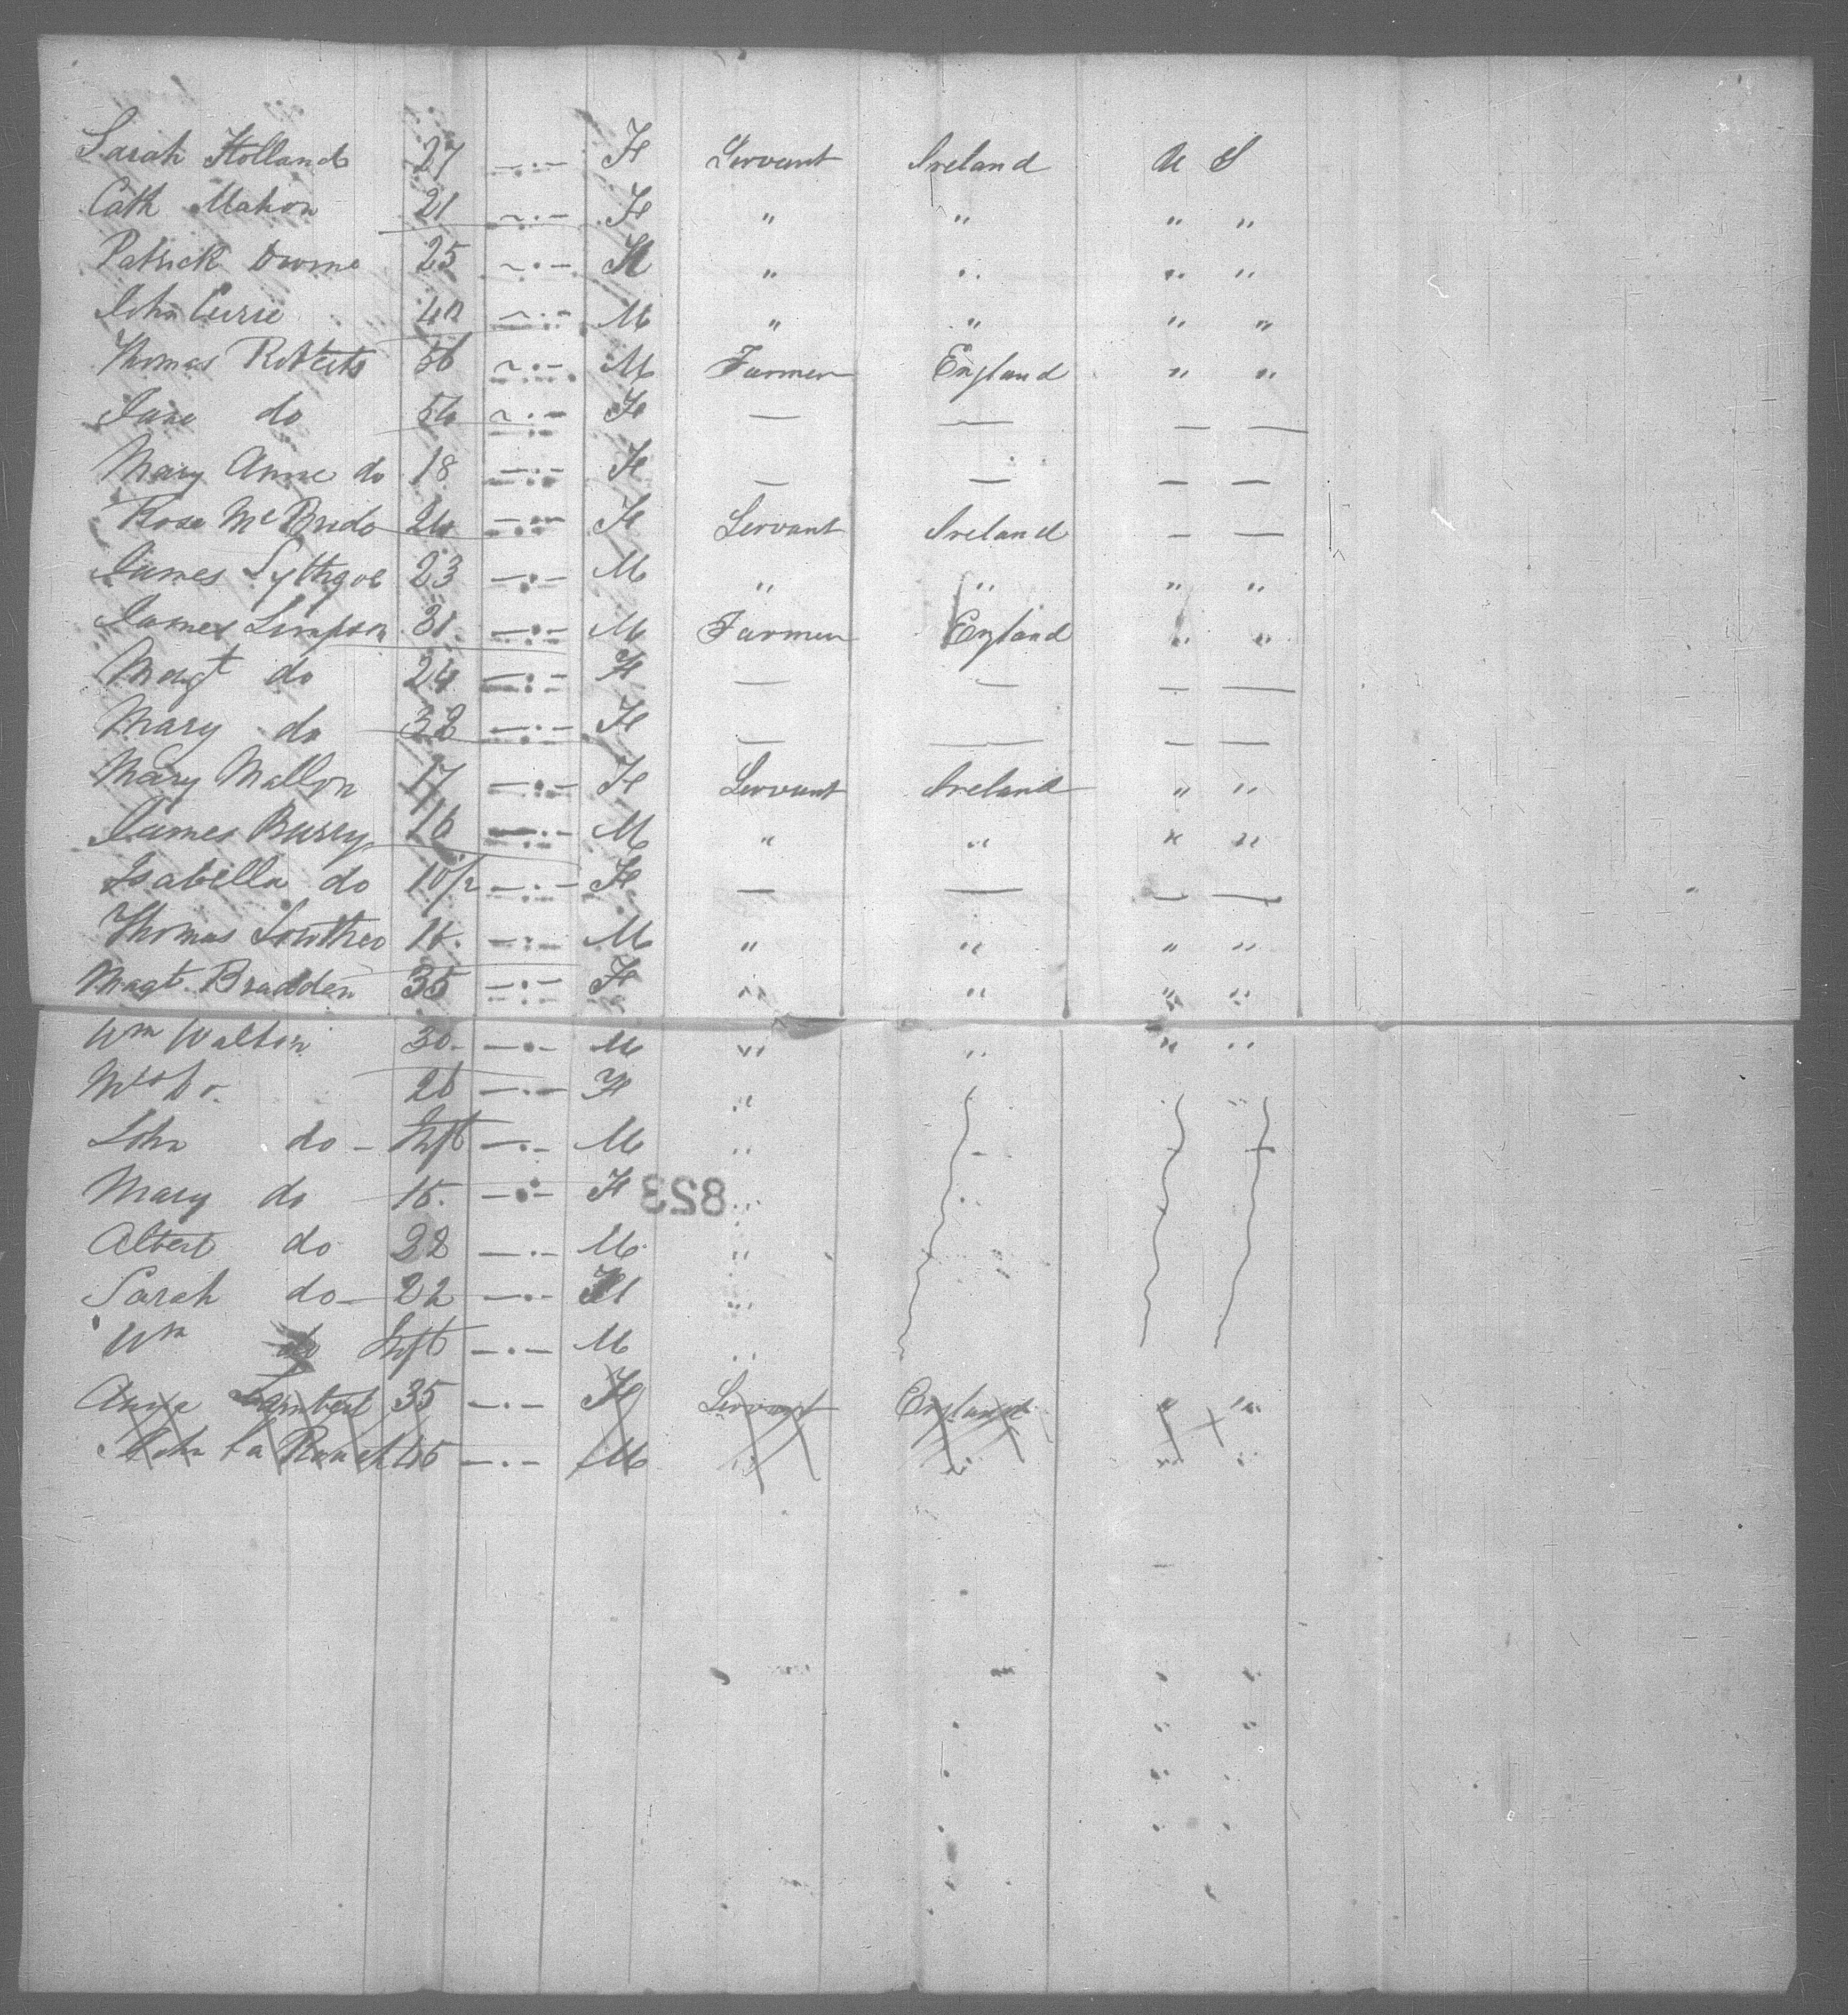 Sarah Holland 27 —.— F Servant Ireland U S
Cath Mahon 21 ~.— F " " " "
Patrick 25 ~.— " " " "
John Currie 40 ~.— M " " " "
Thomas Roberts 56 ~.— M Farmer England " "
Jane do 54 ~.— F — — — —
Mary Anne do 18 —.— F — — — —
Rose McBride 24 —.— F Servant Ireland — —
James Lythgoe 23 —.— M " " " "
James Simpson 31 —.— M Farmer England " "
Magt do 24 —.— F — — — —
Mary do 32 —.— F — — — —
Mary Mallon 17 —.— F Servant Ireland " "
James Barry 16 —.— M " " " "
Isabella do 10/12 —.— F — — — —
Thomas —.— M " " " "
Magt Bradden 35 —.— F " " " "
Wm Walton 30 —.— M " " " "
Mrs Do. 26 —.— F "
John do — Inft —.— M "
Mary do 15. —.— F "
823
Albert do 22 —.— M "
Sarah do — 22 —.— F "
Wm do Inft —.— M "
Anna Lambert 35 —.— F Servant England " "
John La 45 —.— M " " " "